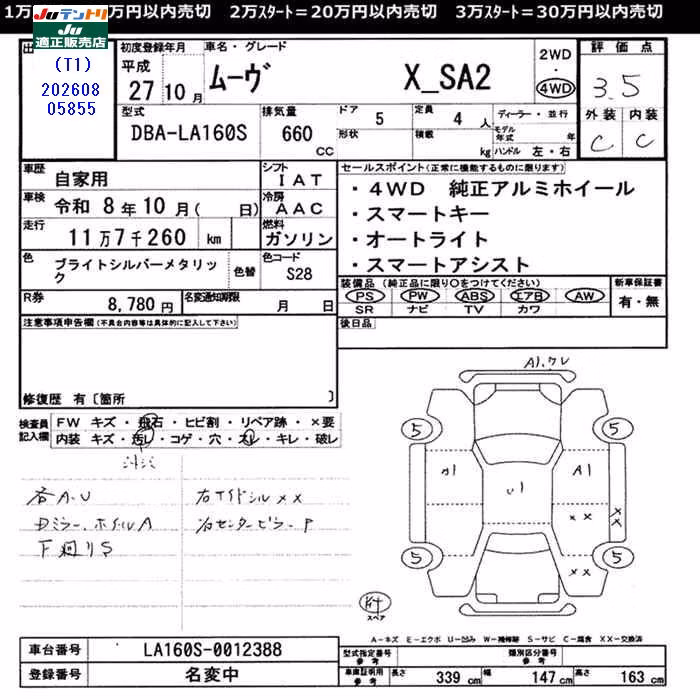 1万 万円以内売切 2万スタート=20万円以内売切 3万スタート=30万円以内売切
Juテントリ
JU 適正販売店
(T1)
202608
05855
初度登録年月
車名・グレード
平成
27 10 月
ムーヴ X_SA2
2WD
・
4WD
評価点
3.5
外装 内装
C C
型式
DBA-LA160S
排気量
660 CC
ドア 5
形状
定員 4 人
積載 kg
ディーラー・並行
モデル年式 年
ハンドル 左・右
車歴
自家用
シフト
IAT
車検
令和 8年10月( 日)
冷房
AAC
走行
11万7千260 km
燃料
ガソリン
色
ブライトシルバーメタリック
色替
色コード
S28
R券
8,780円
名変通知期限
月 日
セールスポイント(正常に機能するものに限ります)
・4WD 純正アルミホイール
・スマートキー
・オートライト
・スマートアシスト
装備品 (純正品に限り○をつけてください)
PS PW ABS エアB AW
SR ナビ TV カワ
新車保証書
有・無
後日品
注意事項申告欄(不具合内容等は具体的に記入して下さい)
修復歴 有〔箇所 〕
検査員記入欄
FW キズ・飛石・ヒビ割・リペア跡・×要
内装 キズ・汚レ・コゲ・穴・スレ・キレ・破レ
各A・U
Dミラー、ホイルA
下廻りS
右サイドシル××
A1
5 5
A1
U1
××
××
5 5
××
スペア
A-キズ E-エクボ U-凹み W-補修跡 S-サビ C-腐食 XX-交換済
車台番号 LA160S-0012388
登録番号 名変中
型式指定番号 参考
類別区分番号 参考
車庫証明用 参考
長さ 339 cm 幅 147 cm 高さ 163 cm